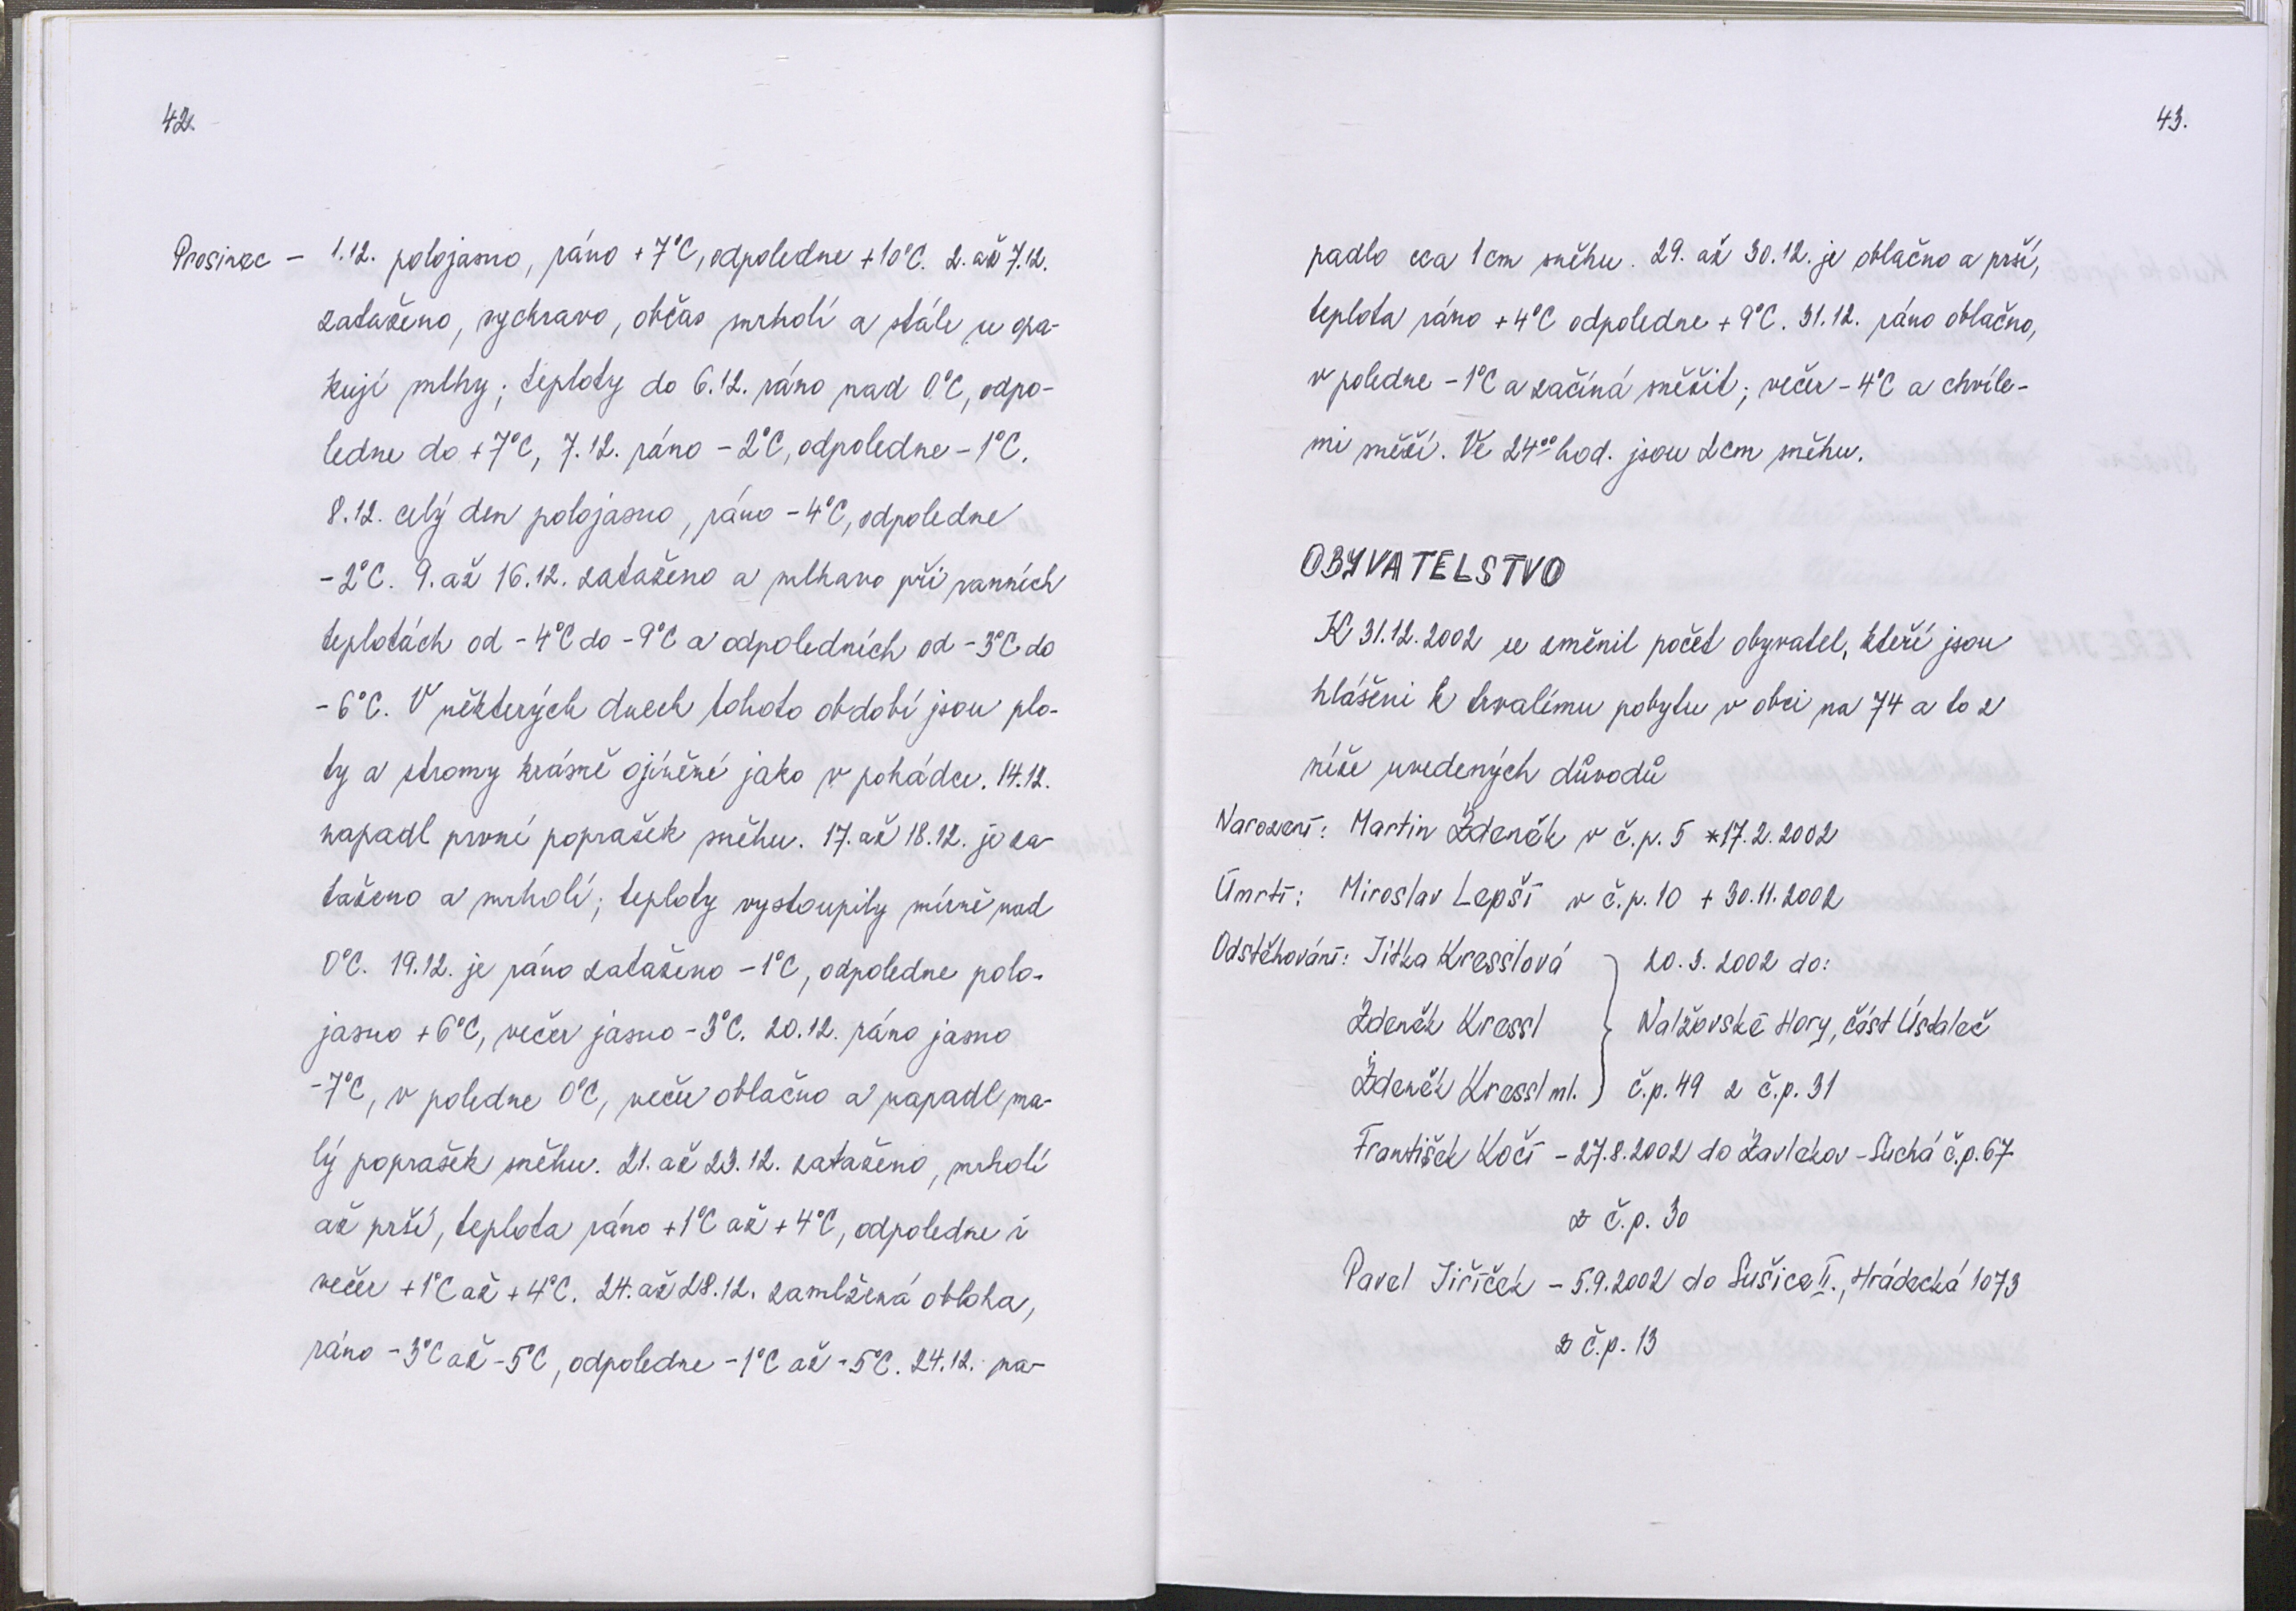 42.
Prosinec – 1.12. polojasno, ráno +7°C, odpoledne +10°C. 2. až 7.12.
zataženo, sychravo, občas mrholí a stále se opa-
kují mlhy; teploty do 6.12. ráno nad 0°C, odpo-
ledne do +7°C, 7.12. ráno -2°C, odpoledne -1°C.
8.12. celý den polojasno, ráno -4°C, odpoledne
-2°C. 9. až 16.12. zataženo a mlhavo při ranních
teplotách od -4°C do -9°C a odpoledních od -3°C do
-6°C. V některých dnech tohoto období jsou plo-
ty a stromy krásně ojíněné jako v pohádce. 14.12.
napadl první poprašek sněhu. 17. až 18.12. je za-
taženo a mrholí; teploty vystoupily mírně nad
0°C. 19.12. je ráno zataženo -1°C, odpoledne polo-
jasno +6°C, večer jasno -3°C. 20.12. ráno jasno
-7°C, v poledne 0°C, večer oblačno a napadl ma-
lý poprašek sněhu. 21. až 23.12. zataženo, mrholí
až prší, teplota ráno +1°C až +4°C, odpoledne i
večer +1°C až +4°C. 24. až 28.12. zamlžená obloha,
ráno -3°C až -5°C, odpoledne -1°C až -5°C. 24.12. na-
43.
padlo cca 1cm sněhu. 29. až 30.12. je oblačno a prší,
teplota ráno +4°C odpoledne +9°C. 31.12. ráno oblačno,
v poledne -1°C a začíná sněžit; večer -4°C a chvíle-
mi sněží. Ve 24⁰⁰ hod. jsou 2cm sněhu.
OBYVATELSTVO
K 31.12.2002 se změnil počet obyvatel, kteří jsou
hlášeni k trvalému pobytu v obci na 74 a to z
níže uvedených důvodů
Narození: Martin Ždeněk v č.p. 5 *17.2.2002
Úmrtí: Miroslav Lepší v č.p. 10 + 30.11.2002
Odstěhování: Jitka Kresslová } 20.3.2002 do:
Zdeněk Kressl } Nalžovské Hory, část Ústaleč
Zdeněk Kressl ml. } č.p. 49 z č.p. 31
František Kočí – 27.8.2002 do Zavlekov – Suchá č.p. 67
z č.p. 30
Pavel Jiříček – 5.9.2002 do Sušice II., Hrádecká 1073
z č.p. 13